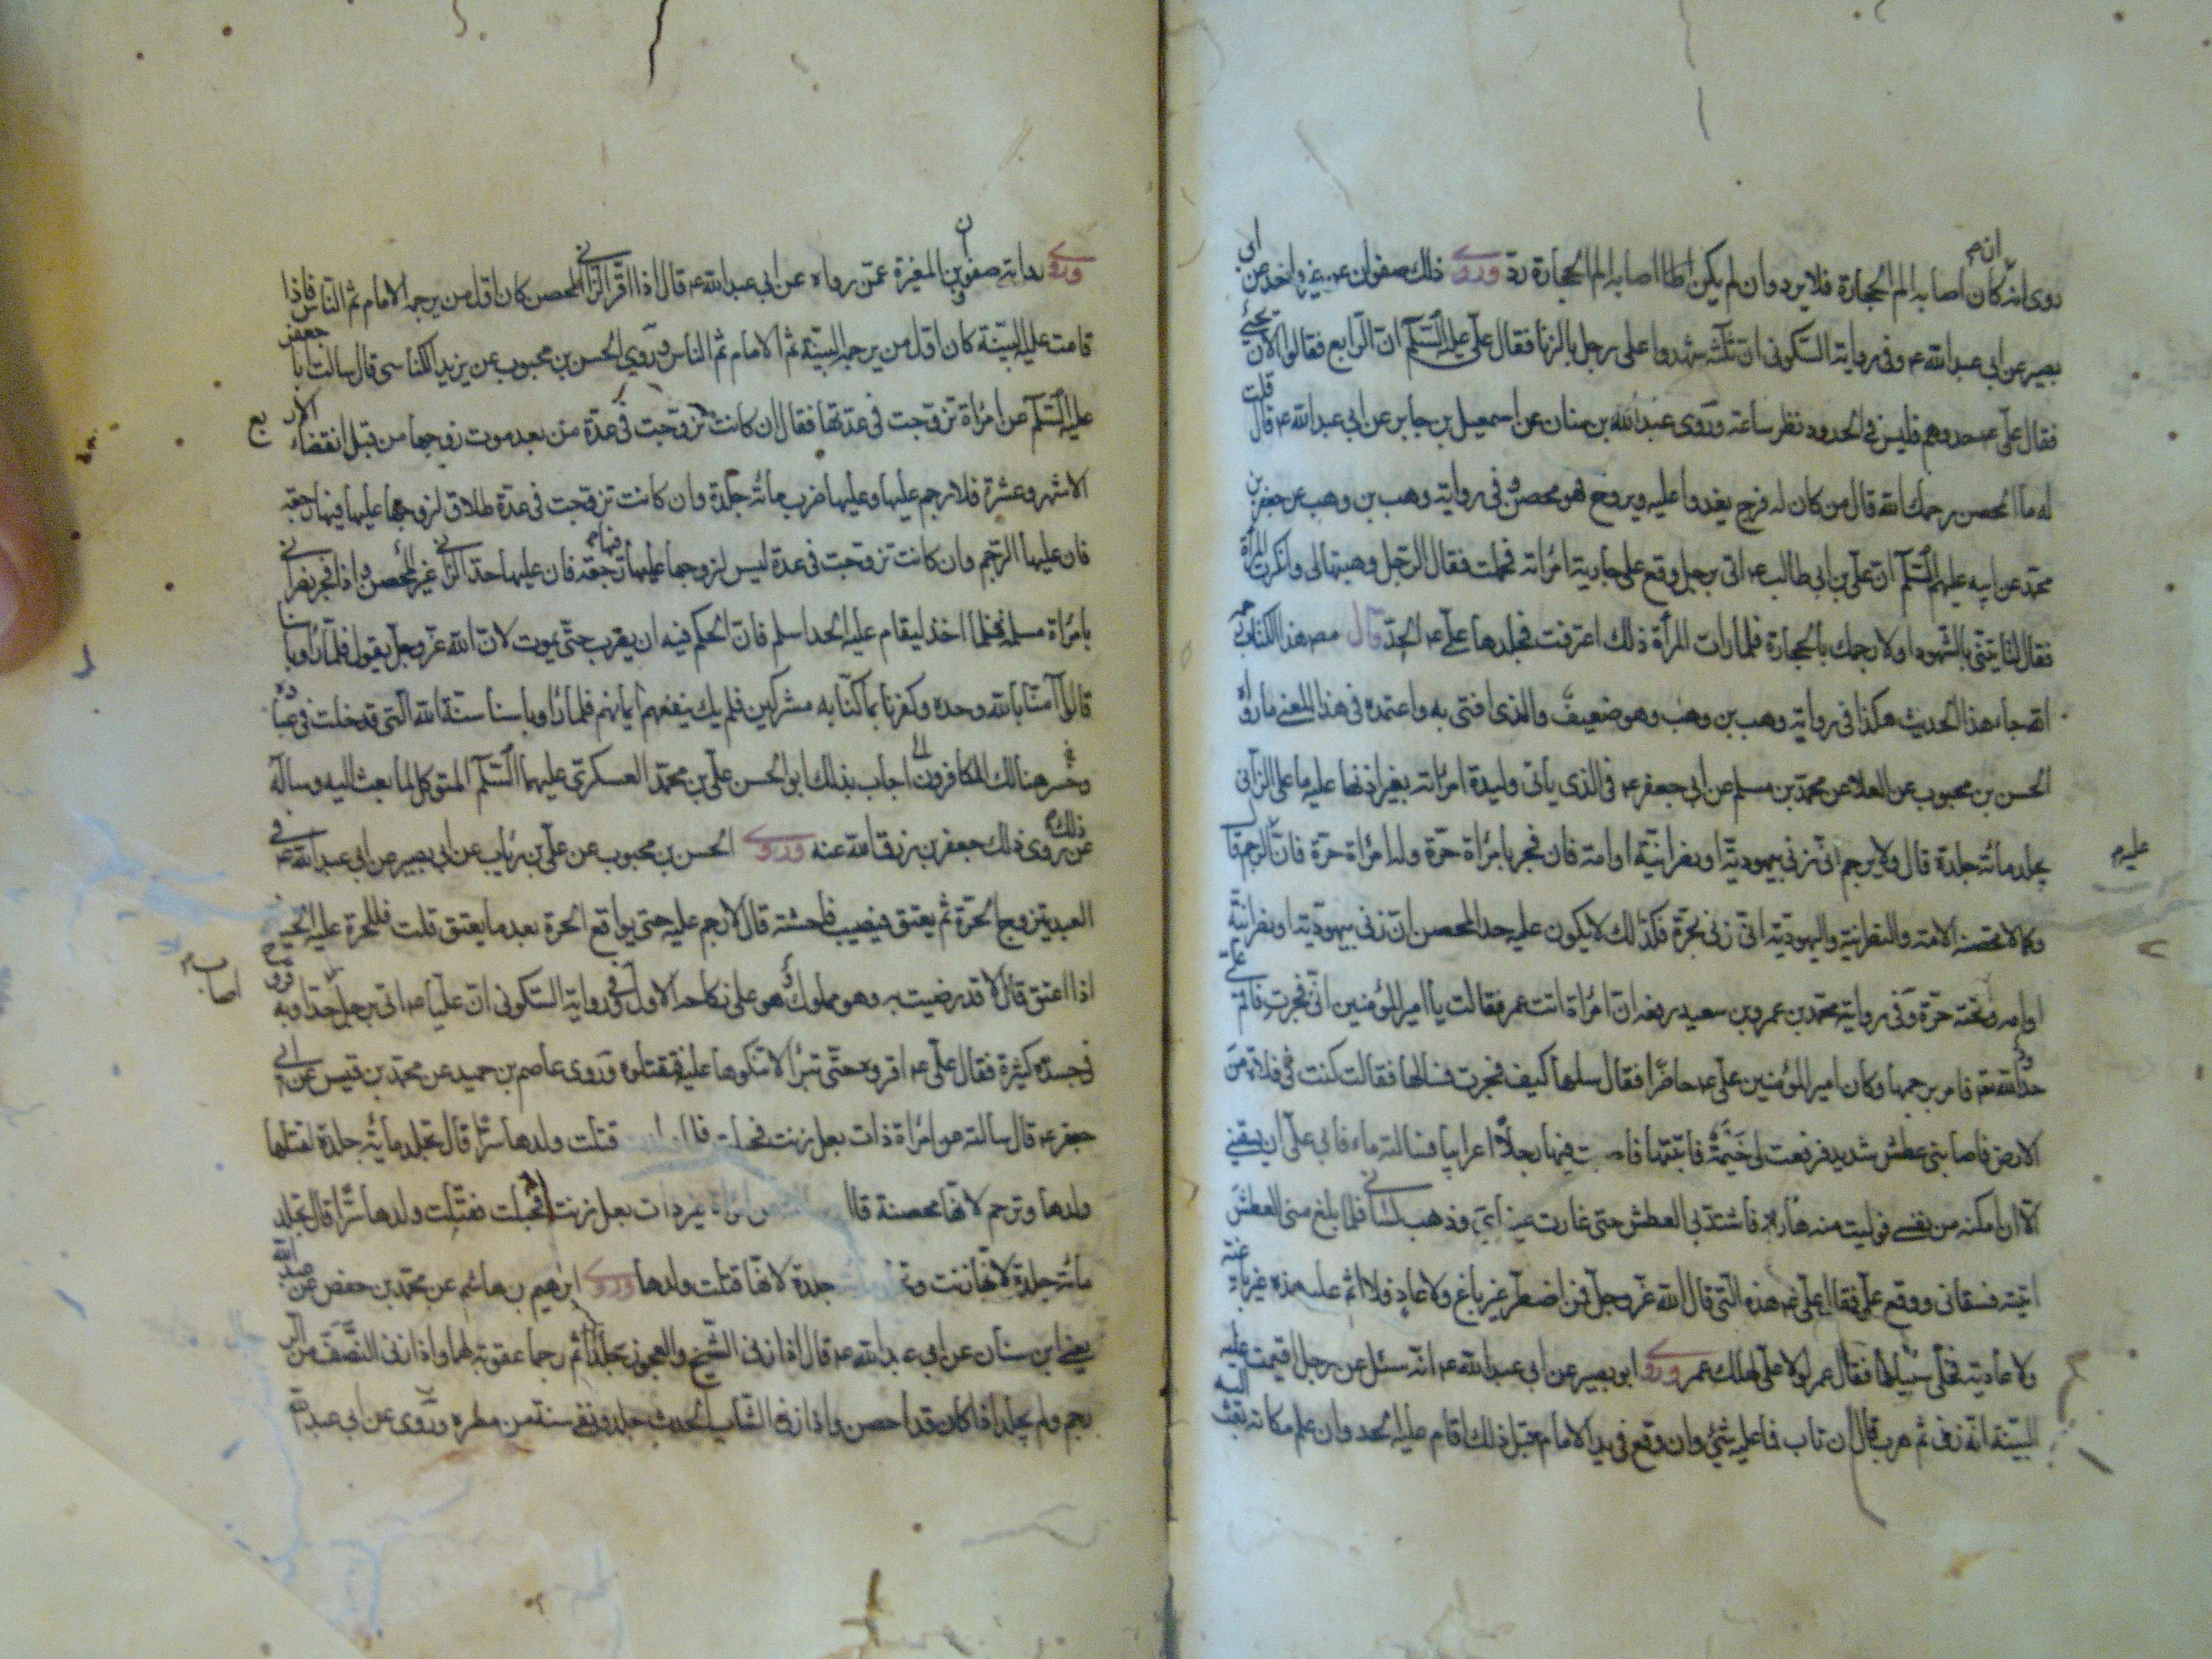 روى انه ان كان اصابه الم الحجارة فلا يرد وان لم يكن اصابه الم الحجارة رد وروى ذلك صفوان عن غير واحد عن ابى
بصير عن ابى عبد الله ع وفى رواية السكونى ان ثلثة شهدوا على رجل بالزنا فقال على عليه السلم اين الرابع فقالوا الان يجئ
فقال على ع حدوهم فليس فى الحدود نظر ساعة وروى عبد الله بن سنان عن اسمعيل بن جابر عن ابى عبد الله ع قال قلت
له ما المحصن رحمك الله قال من كان له فرج يغدو عليه ويروح فهو محصن وفى رواية وهب بن وهب عن جعفر بن
محمد عن ابيه عليهم السلم ان على بن ابى طالب ع اتى برجل وقع على جارية امراته فحملت فقال الرجل وهبتها لى وانكرت المراة
فقال لتاتينى بالشهود او لارجمنك بالحجارة فلما رات المرأة ذلك اعترفت فجلدها على ع الحد قال مصنف هذا الكتاب رحمه
الله جاء هذا الحديث هكذا فى رواية وهب بن وهب وهو ضعيف والذى افتى به واعتمده فى هذا المعنى ما رواه
الحسن بن محبوب عن العلا عن محمد بن مسلم عن ابى جعفر ع فى الذى ياتى وليدة امراته بغير اذنها عليه ما على الزانى
يجلد مائة جلدة قال ولا يرجم ان زنى بيهودية او نصرانية او امة فان فجر بامراة حرة وله امراة حرة فان عليه الرجم قال
وكما لا تحصنه الامة والنصرانية واليهودية ان زنى بحرة فكذلك لا يكون عليه حد المحصن ان زنى بيهودية او نصرانية
او امة وتحته حرة وفى رواية محمد بن عمرو بن سعيد رفعه ان امراة اتت عمر فقالت يا امير المؤمنين انى فجرت فاقم على
حد الله عز وجل فامر برجمها وكان امير المؤمنين على ع حاضرا فقال سلها كيف فجرت فسالها فقالت كنت فى فلاة من
الارض فاصابنى عطش شديد فرفعت لى خيمة فاتيتها فاصبت فيها رجلا اعرابيا فسالته ماء فابى على ان يسقينى
الا ان امكنه من نفسى فوليت منه هاربة فاشتد بى العطش حتى غارت عيناى وذهب لسانى فلما بلغ منى العطش
اتيته فسقانى ووقع على فقال على ع هذه التى قال الله عز وجل فمن اضطر غير باغ ولا عاد فلا اثم عليه هذه غير باغية
ولا عادية فخلى سبيلها فقال عمر لولا على لهلك عمر وروى ابو بصير عن ابى عبد الله ع انه سئل عن رجل اقيمت عليه
البينة انه زنى ثم هرب قال ان تاب فما عليه شئ وان وقع فى يد الامام قبل ذلك اقام عليه الحد وان علم مكانه بعث اليه
وفى رواية صفوان بن المغيرة عمن رواه عن ابى عبد الله ع قال اذا اقر الزانى المحصن كان اول من يرجمه الامام ثم الناس فاذا
قامت عليه البينة كان اول من يرجمه البينة ثم الامام ثم الناس وروى الحسن بن محبوب عن يزيد الكناسى قال سالت ابا جعفر
عليه السلم عن امراة تزوجت فى عدتها فقال ان كانت تزوجت فى عدة من بعد موت زوجها من قبل انقضاء الاربع
الاشهر وعشرة فلا رجم عليها وعليها ضرب مائة جلدة وان كانت تزوجت فى عدة طلاق لزوجها عليها فيها رجعة
فان عليها الرجم وان كانت تزوجت فى عدة ليس لزوجها عليها فيها رجعة فان عليها حد الزانى غير المحصن واذا فجر نصرانى
بامراة مسلمة فلما اخذ ليقام عليه الحد اسلم فان الحكم فيه ان يضرب حتى يموت لان الله عز وجل يقول فلما راوا باسنا
قالوا امنا بالله وحده وكفرنا بما كنا به مشركين فلم يك ينفعهم ايمانهم لما راوا باسنا سنة الله التى قد خلت فى عباده
وخسر هنالك الكافرون اجاب بذلك ابو الحسن على بن محمد العسكرى عليهما السلم المتوكل لما بعث اليه وساله
عن ذلك روى ذلك جعفر بن رزق الله عنه وروى الحسن بن محبوب عن على بن رئاب عن ابى بصير عن ابى عبد الله ع فى
العبد يتزوج الحرة ثم يعتق فيصيب فاحشة قال لا رجم عليه حتى يواقع الحرة بعد ما يعتق قلت فللحرة عليه الخيار
اذا اعتق قال لا قد رضيت به وهو مملوك فهو على نكاحه الاول وفى رواية السكونى ان عليا ع اتى برجل اصاب حدا وبه قروح
فى جسده كثيرة فقال على ع اقروه حتى تبرا لا تنكوها عليه فتقتلوه وروى عاصم بن حميد عن محمد بن قيس عن ابى
جعفر ع قال سالته عن امراة ذات بعل زنت فحبلت فلما ولدت قتلت ولدها سرا قال تجلد مائة جلدة لقتلها
ولدها وترجم لانها محصنة قال وسالته عن امراة غير ذات بعل زنت فحبلت فقتلت ولدها سرا قال تجلد
مائة جلدة لانها زنت وتجلد مائة جلدة لانها قتلت ولدها وروى ابرهيم بن هاشم عن محمد بن حفص عن عبد الله
يعنى ابن سنان عن ابى عبد الله ع قال اذا زنى الشيخ والعجوز جلدا ثم رجما عقوبة لهما واذا زنى النصف من الرجال
رجم ولم يجلد اذا كان قد احصن واذا زنى الشاب الحدث جلد ونفى سنة من مصره وروى عن ابى عبد الله